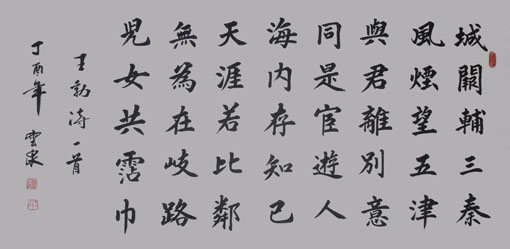 城闕輔三秦
風煙望五津
與君離別意
同是宦遊人
海内存知己
天涯若比鄰
無為在岐路
兒女共霑巾
王勃诗一首
丁酉年